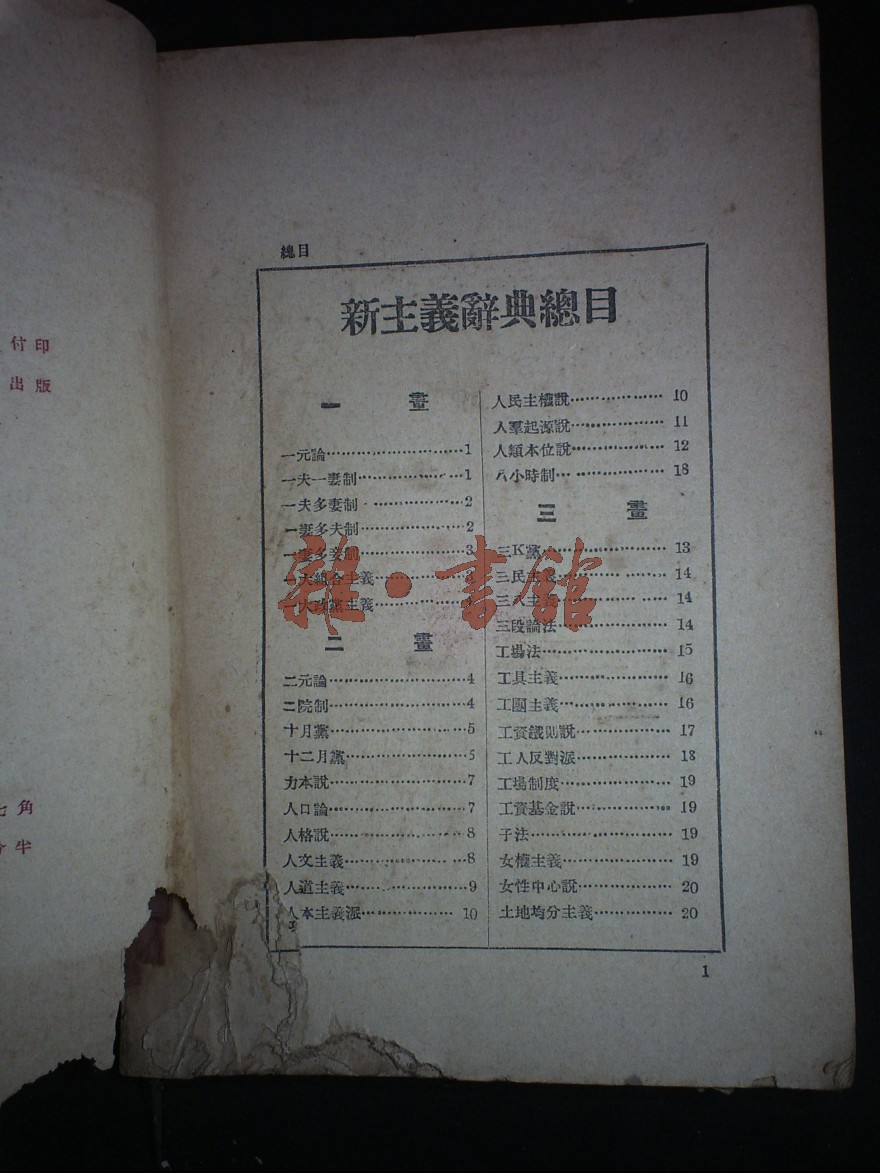 付印
出版
七角
分半
總目
新主義辭典總目
一畫
一元論…………………1
一夫一妻制………………1
一夫多妻制………………2
一妻多夫制………………2
一妻多妾制………………3
一大綜合主義
一大政黨主義
二畫
二元論…………………4
二院制…………………4
十月黨…………………5
十二月黨…………………5
力本說…………………7
人口論…………………7
人格說…………………8
人文主義…………………8
人道主義…………………9
人本主義派………………10
人民主權說………………10
人羣起源說………………11
人類本位說………………12
八小時制…………………13
三畫
三K黨…………………13
三民主義…………………14
三人主義…………………14
三段論法…………………14
工場法…………………15
工具主義…………………16
工團主義…………………16
工資鐵則說………………17
工人反對派………………18
工場制度…………………19
工資基金說………………19
子法…………………19
女權主義…………………19
女性中心說………………20
土地均分主義………………20
1
雜·書館